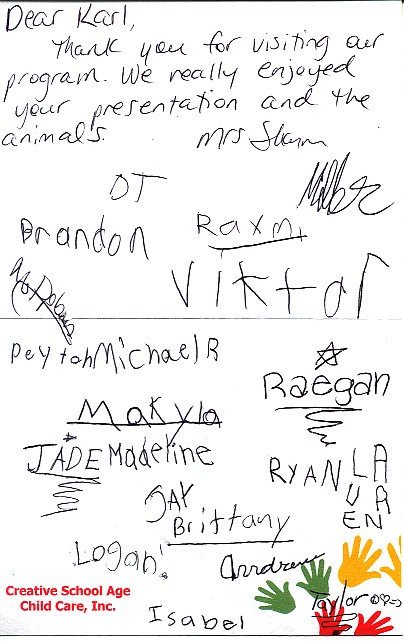 Dear Karl,
Thank you for visiting our
program. We really enjoyed
your presentation and the
animals.
Mrs.
DT
Brandon
Viktor
Peyton Michael R
Raegan
Makyla
JADE Madeline
RYAN
LA
U R
A
EN
JAY
Brittany
Logan!
Andrew
Creative School Age
Child Care, Inc.
Taylor
Isabel